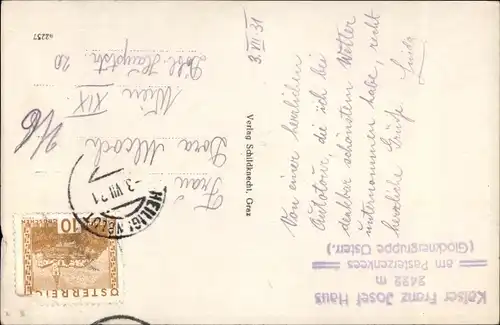 3. VII. 31
Von einer herrlichen
Autotour, die ich bei
denkbar schönstem Wetter
unternommen habe, recht
herzliche Grüße
Linda
Frau
Dora
Wien XIX
Döbl. Hauptstr. 20
Verlag Schildknecht, Graz
62257
HEILIGENBLUT
-3.VII.31
10
ÖSTERREICH
Kaiser Franz Josef Haus
2422 m
am Pasterzenkees
(Glocknergruppe Österr.)